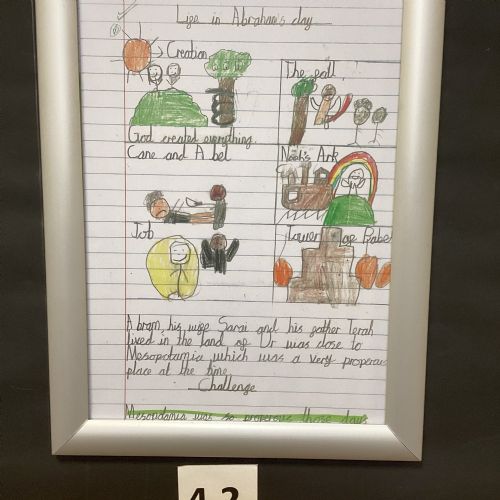 Life in Abraham's day
Creation
The fall
God created everything.
Cane and Abel
Noah's Ark
Job
Tower of Babel
Abram, his wife Sarai and his father Terah
lived in the land of Ur was close to
Mesopotamia which was a very properous
place at the time.
Challenge
Mesopotamia was so properous those days
4.2